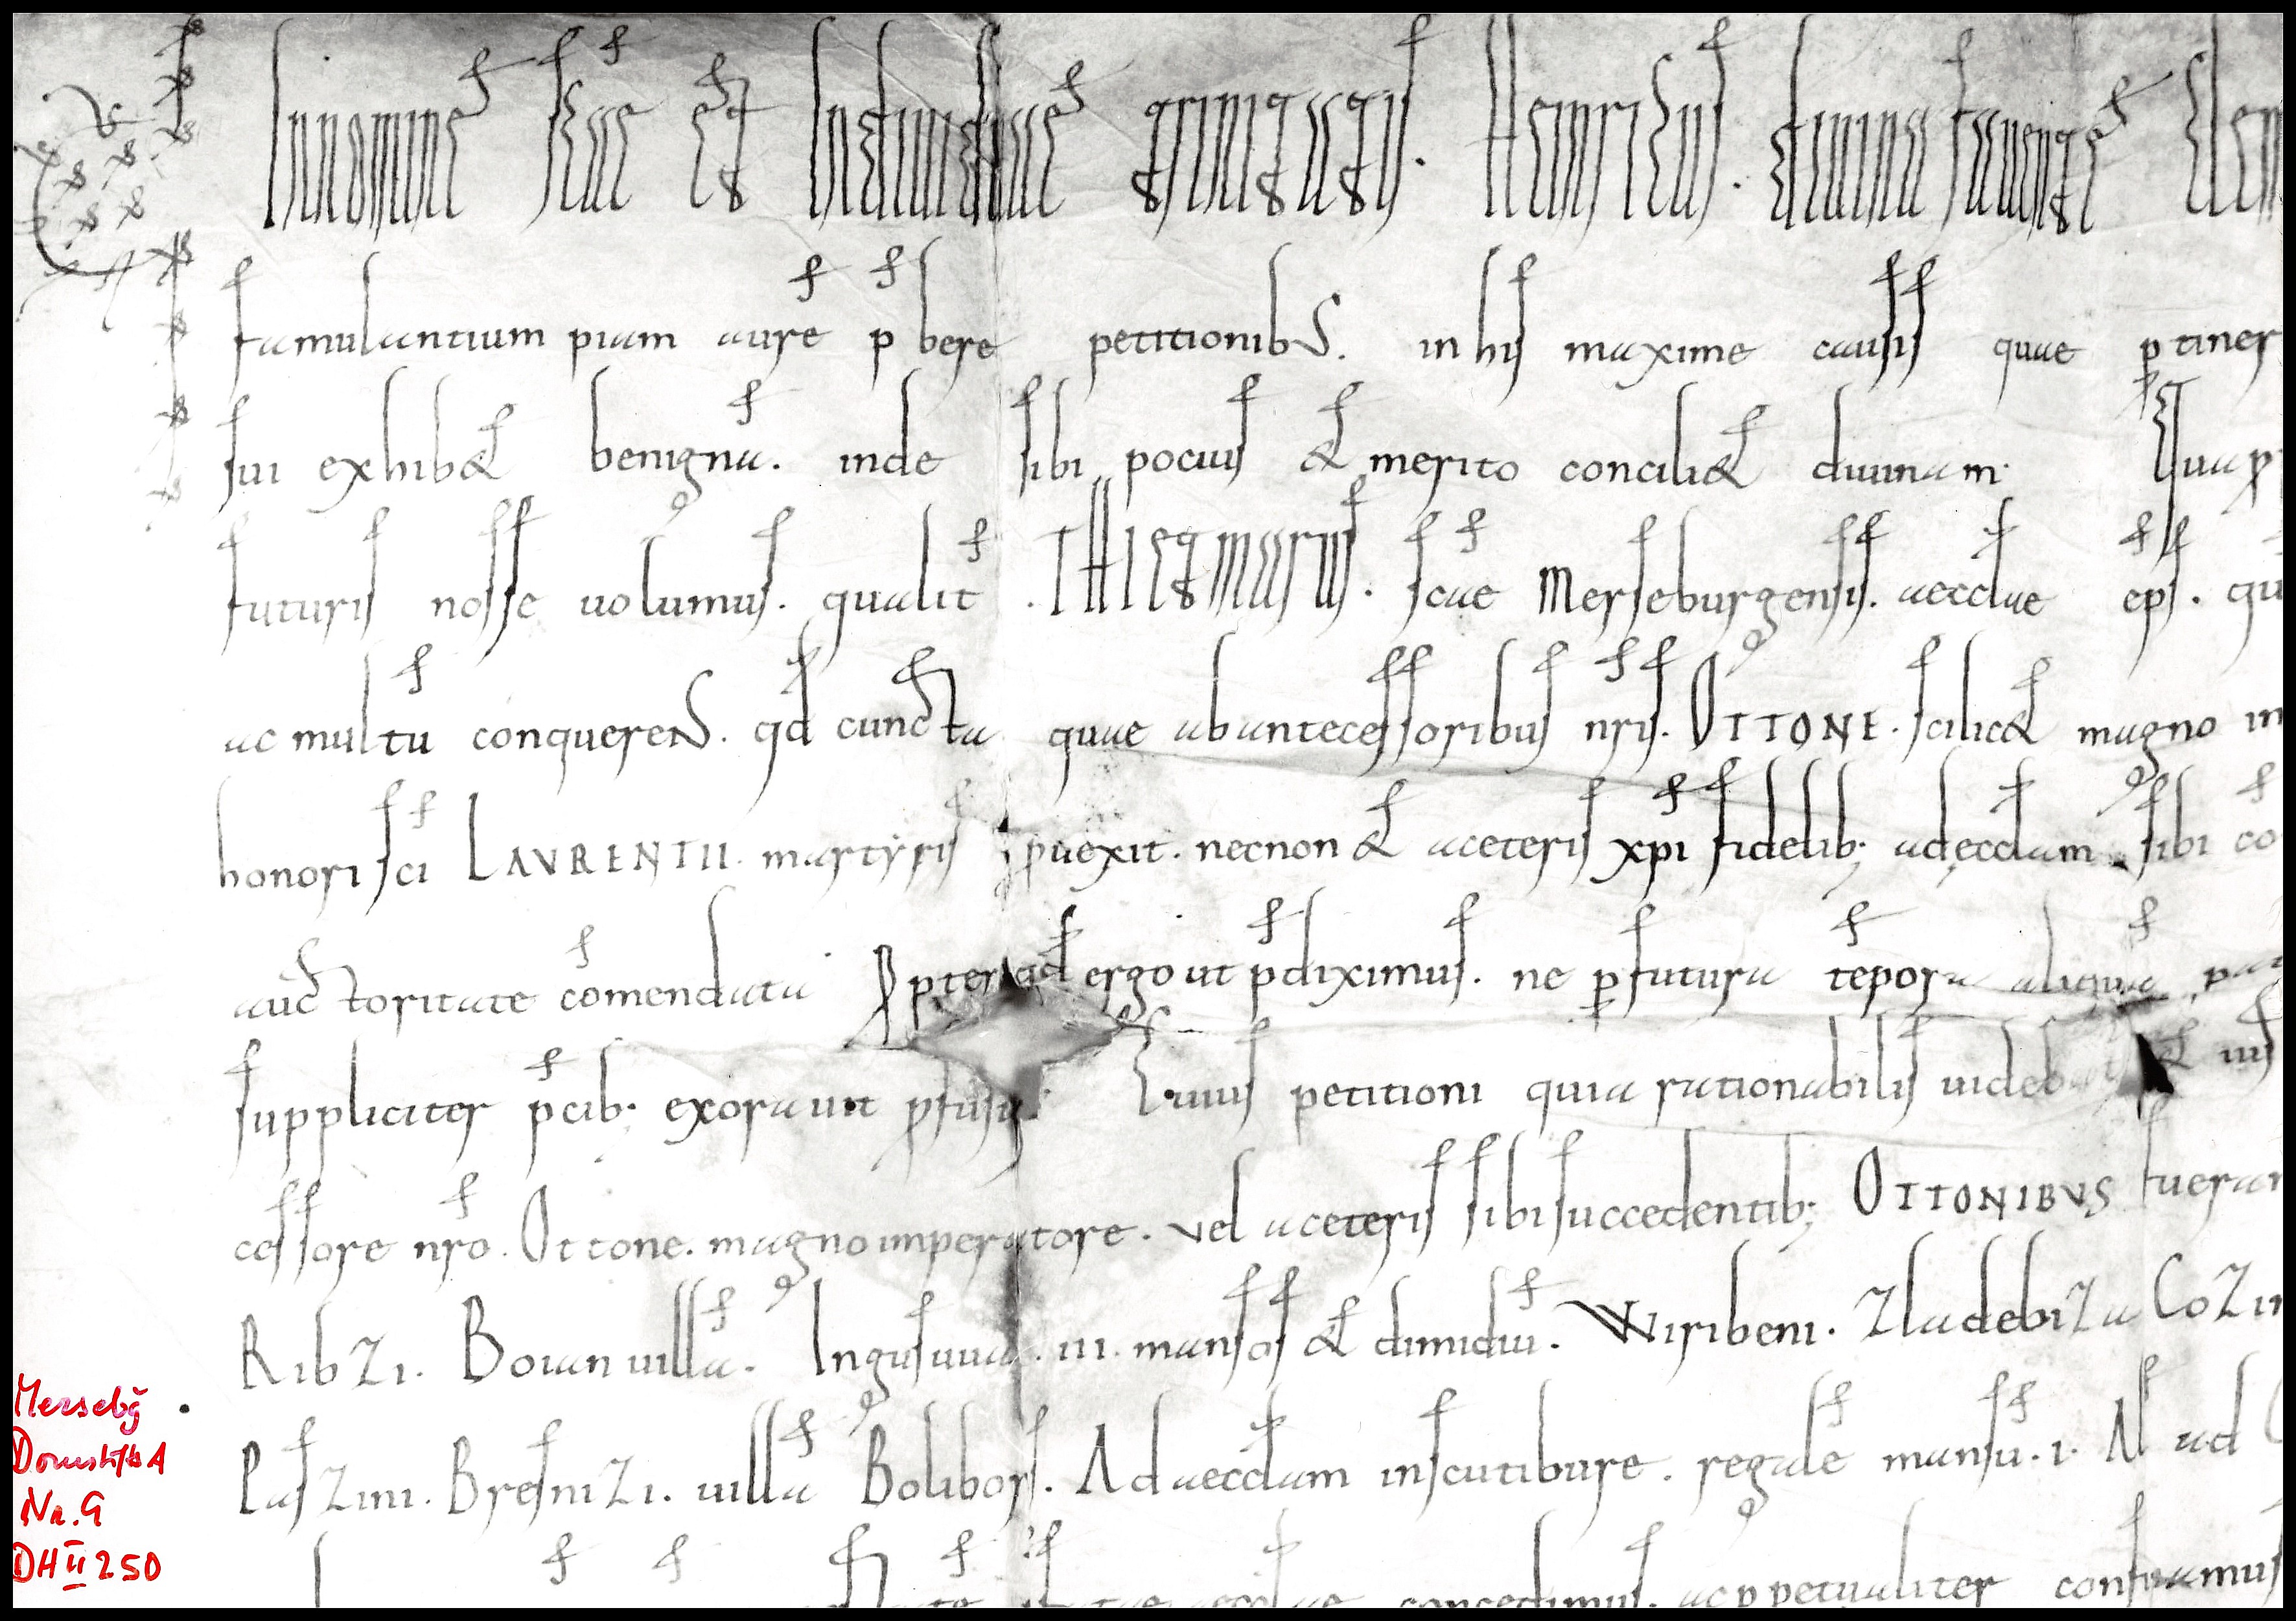 In nomine scae et individuae trinitatis. Heinricus. divina favente clem
famulantium piam aure p bere petitionibus. in his maxime causis quae ptiner
sui exhib& benigna. inde sibi pocius & merito concili& divinam. Quap
futuris nosse volumus. qualit. THIETMARUS. scae Merseburgensis. aecclae eps. qu
ac multu conquerens. qd cuncta quae ab antecessoribus nris. OTTONE. scilic& magno in
honori sci LAVRENTII. martyris puexit. necnon & a ceteris xpi fidelib; ad eccdam sibi co
auctoritate comendata Ppter qd ergo ut pdiximus. ne p futura tepora aliqua
suppliciter pcib; exoravit pfusis. Cuius petitioni quia rationabilis &
cessore nro. Ottone. magno imperatore. vel a ceteris sibi succedentib; OTTONIBVS fuerun
Ribzi. Boianvilla. In gusuua. III. mansos & dimidiu. Wiribeni. Zladebiza Cozin
Paszini. Bresnizi. villa Bolibors. Ad aeccdam in scutibure. regale mansu. I. ad
concedimus. ac ppetualiter confirmamus
Mersebg
Domstift A
Nr. 9
DH II 250